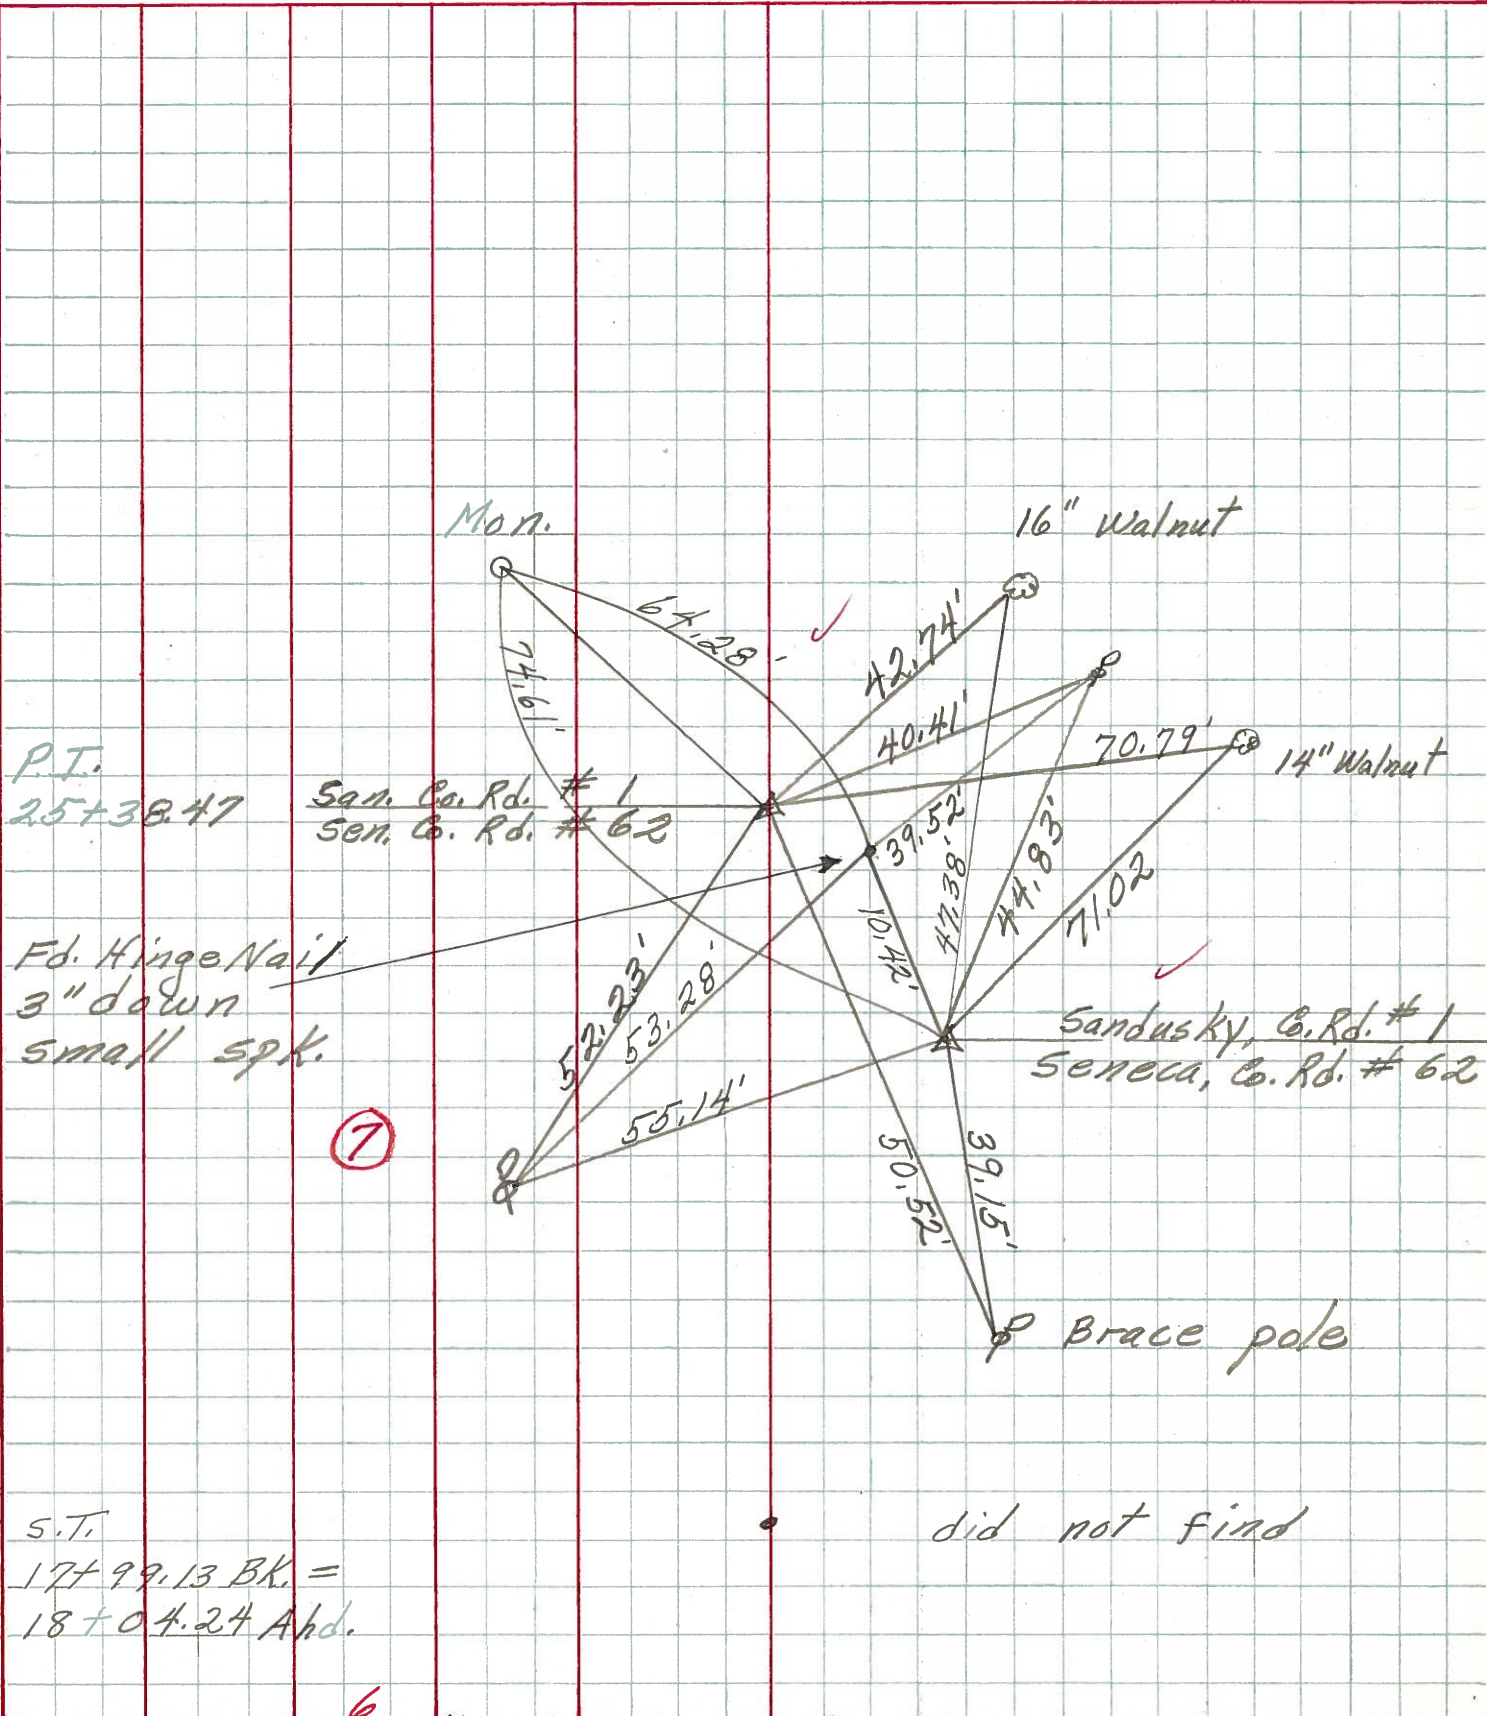 Mon.
16" Walnut
64.28'
42.74'
74.61'
40.41'
70.79'
14" Walnut
P.I.
25+38.47
San. Co. Rd. # 1
Sen. Co. Rd. # 62
39.52'
47.38'
44.83'
71.02
10.42'
Fd. Hinge Nail
3" down
small spk.
52.23'
53.28'
Sandusky, Co. Rd. # 1
Seneca, Co. Rd. # 62
55.14'
7
50.52'
39.15'
Brace pole
S.T.
did not find
17+99.13 BK. =
18+04.24 Ahd.
6